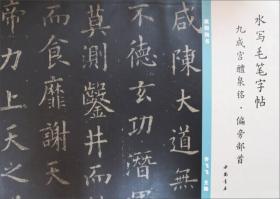 水写毛笔字帖
九成宫醴泉铭·偏旁部首
中国书店
欧阳询书
咸陳大道無
不德玄功潛
莫測鑿井而
而食靡謝天